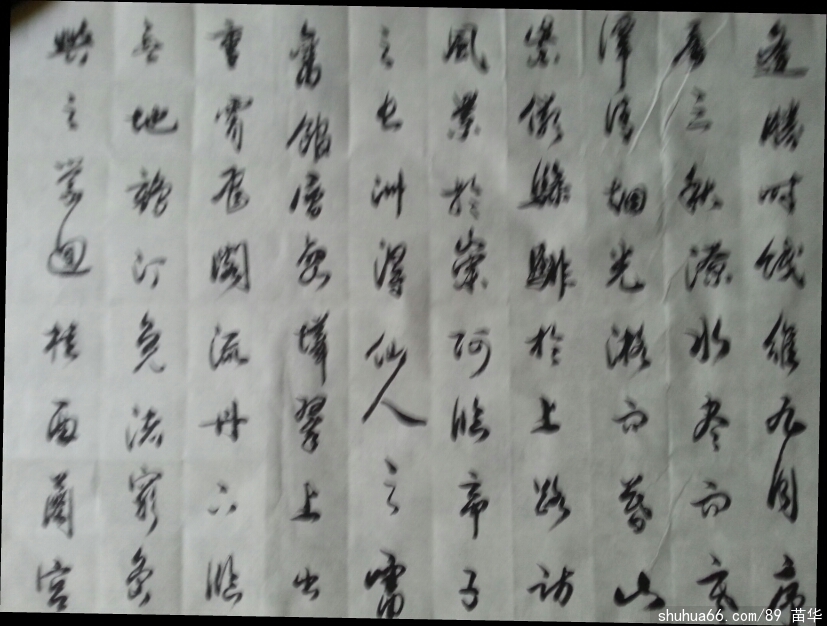 逢勝时饯維九月序
属三秋潦水尽而寒
潭清烟光凝而暮山
紫儼骖騑於上路访
風景於崇阿臨帝子
之长洲得仙人之
舊館層翠上出
重霄飛閣流丹下臨
無地鶴汀凫渚窮島
嶼之縈迴桂蘭宮
shuhua66.com/89 苗华